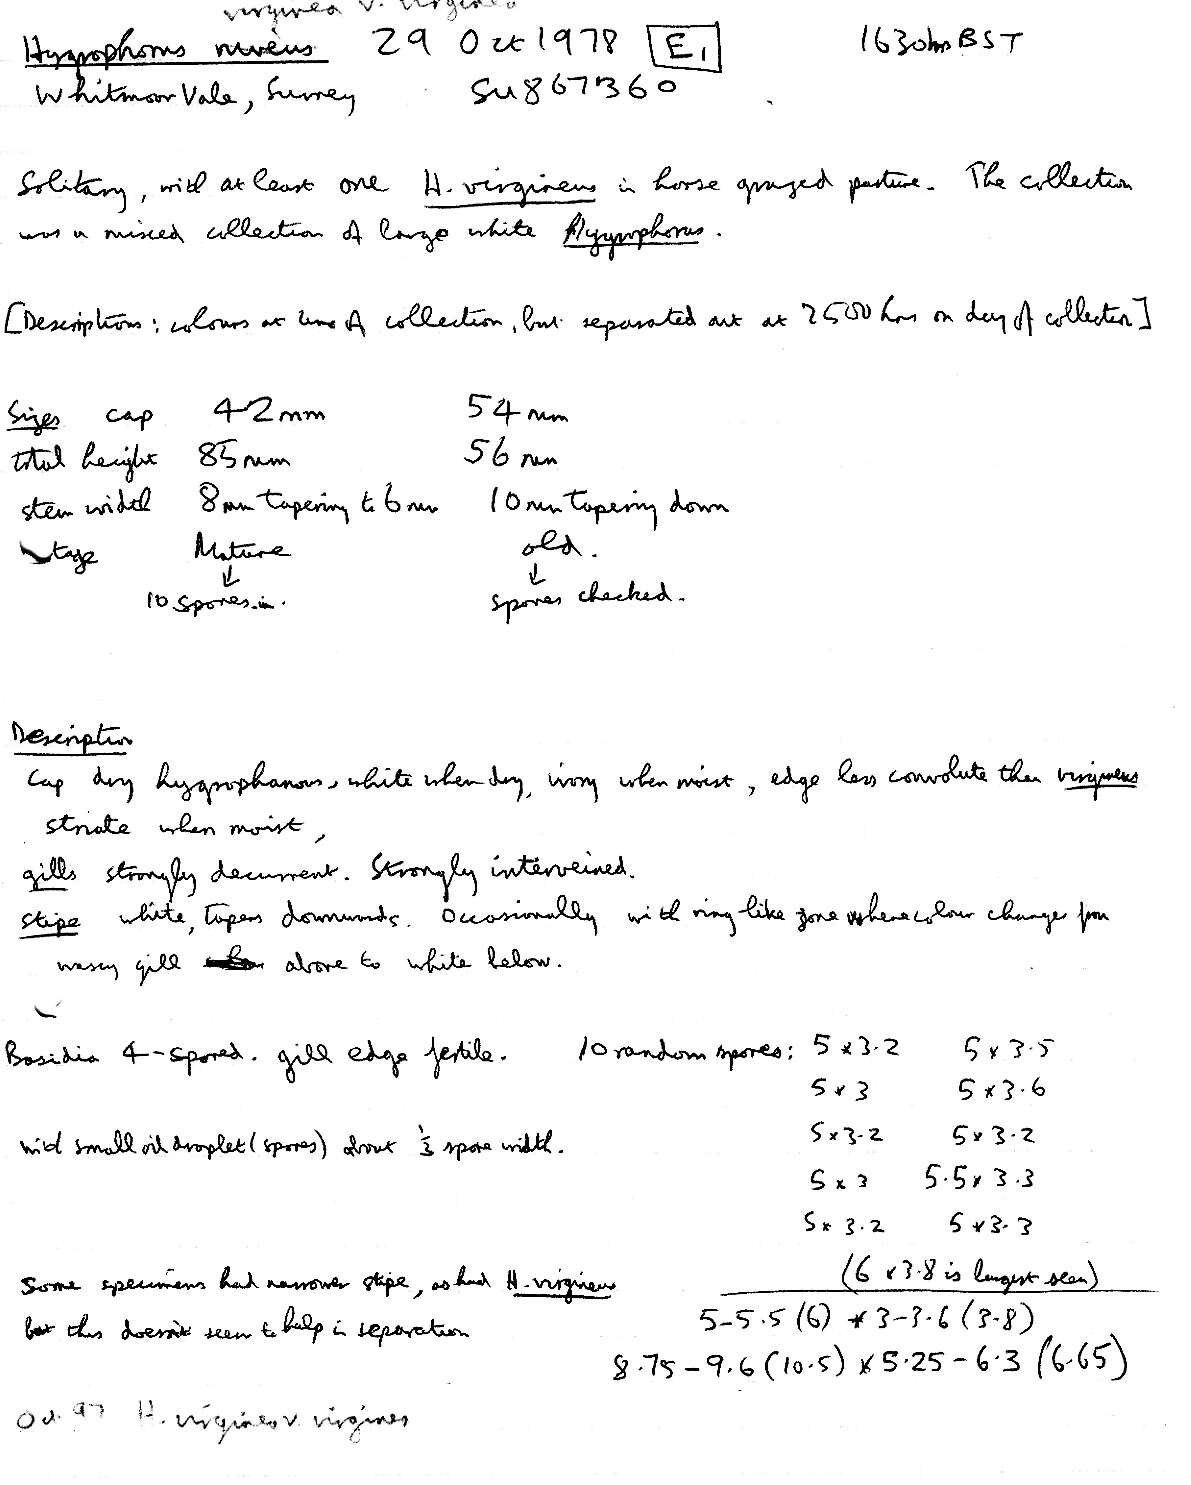 virginea v. virginea
Hygrophorus niveus 29 Oct 1978 E1 1630hrs BST
Whitmoor Vale, Surrey SU867360
Solitary, with at least one H. virgineus in horse grazed pasture. The collection
was a mixed collection of large white Hygrophorus.
[Descriptions: colours at time of collection, but separated out at 2500 hrs on day of collection]
Sizes cap 42mm 54mm
total height 85mm 56mm
stem width 8mm tapering to 6mm 10mm tapering down
stage Mature old.
↓ ↓
10 spores spores checked.
Description
Cap dry hygrophanous, white when dry, ivory when moist, edge less convolute than virgineus
striate when moist,
gills strongly decurrent. Strongly interveined.
stipe white, tapers downwards. Occasionally with ring like zone where colour changes from
waxy gill above to white below.
Basidia 4-spored. gill edge fertile. 10 random spores: 5 x 3.2 5 x 3.5
5 x 3 5 x 3.6
with small oil droplet (spores) about spore width. 5 x 3.2 5 x 3.2
5 x 3 5.5 x 3.3
5 x 3.2 5 x 3.3
Some specimens had narrower stipe, as had H. virgineus (6 x 3.8 is largest seen)
but this doesn't seem to help in separation 5-5.5 (6) x 3-3.6 (3.8)
8.75-9.6 (10.5) x 5.25-6.3 (6.65)
Oct. 97 H. virginea v. virginea